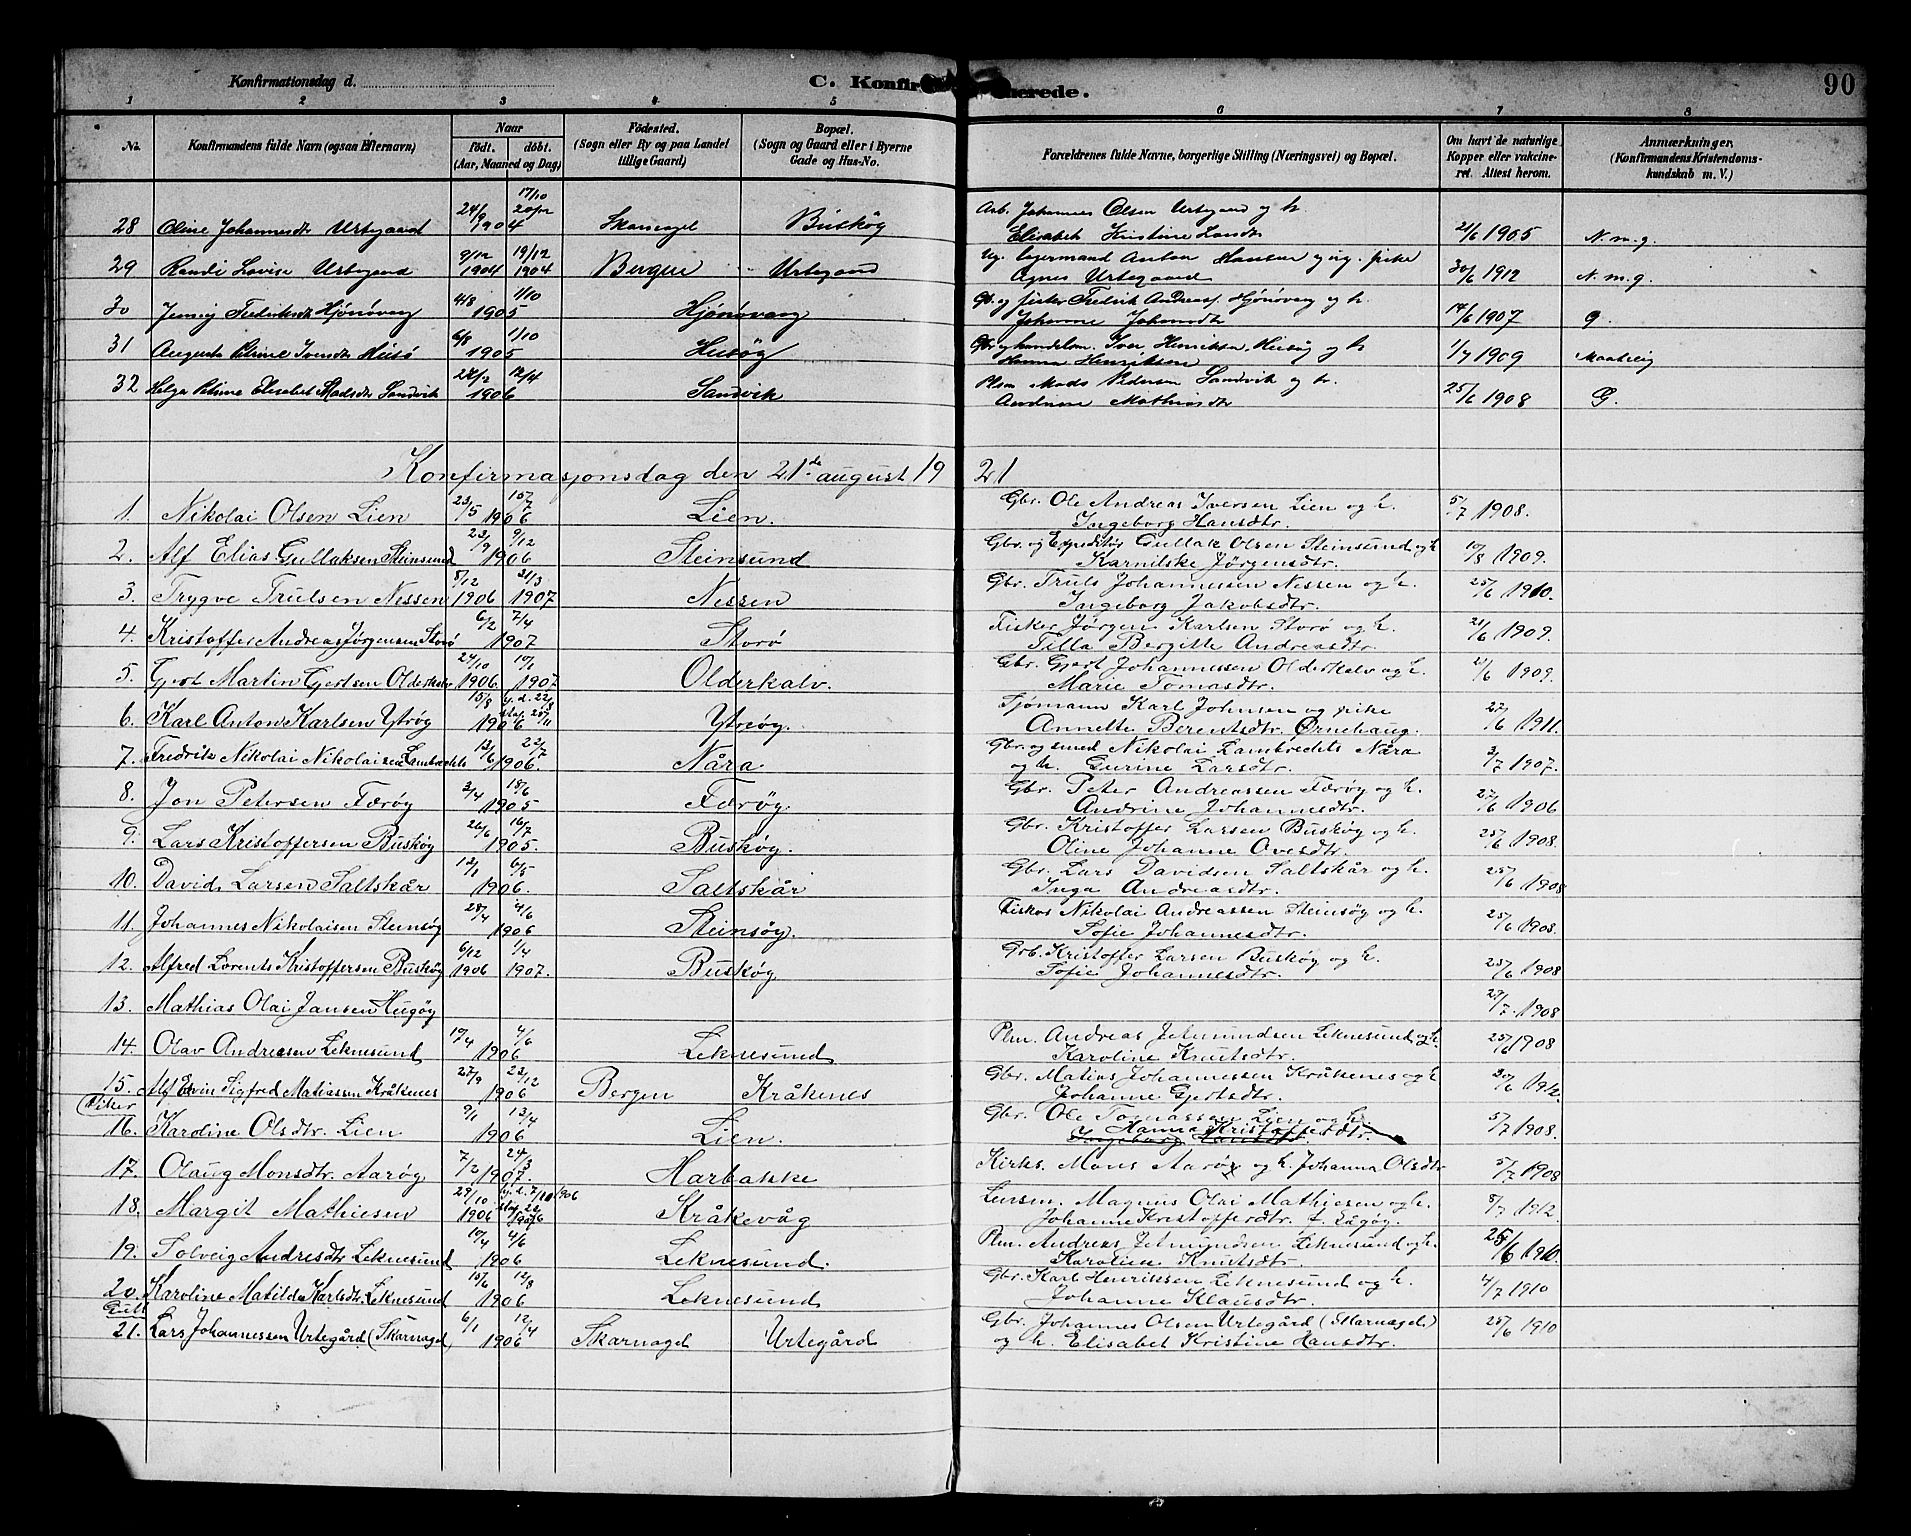 Konfirmationsdag d.
C. Konfir merede.
90
1 2 3 4 5 6 7 8
No. Konfirmandens fulde Navn (ogsaa Efternavn) Naar Födested. Bopæl. Forældrenes fulde Navne, borgerlige Stilling (Næringsvei) og Bopæl. Om havt de naturlige Anmærkninger.
födt. döbt. (Sogn eller By og paa Landet (Sogn og Gaard eller i Byerne Kopper eller vakcine- (Konfirmandens Kristendoms-
(Aar, Maaned og Dag) tillige Gaard) Gade og Hus-No. ret. Attest herom. kundskab m. V.)
28 Oline Johannesdt Urtegaard 24/9 1904 17/10 Skarnagel Buskøg Arb. Johannes Olsen Urtegaard og h. 21/6 1905 N.m.g.
Elisabet Kristine
29 Randi Lovise Urtegaard 9/12 1904 19/12 1904 Bergen Urtegaard Ug. Anton Hansen og ug. pike 30/6 1912 N.m.g.
Agnes Urtegaard
30 Jenny Fredriksdt Hjønøvaag 4/8 1/10 1905 Hjønøvaag Gb. og fisker Fredrik Andreass. Hjønøvaag og h. 14/6 1907 g.
Johanne
31 Augusta Petrine Iversdt Husø 6/8 1/10 1905 Husøg Gbr. og handelsm. Iver Henriksen Husøg og h 1/7 1909 Maadelig
Hanna Henriksen
32 Helga Petrine Elisabet Madsdtr Sandvik 22/2 12/4 1906 Sandvik Plsm Mads Pedersen Sandvik og h. 25/6 1908 G.
Andrine Mathiasdtr
Konfirmasjonsdag den 21de august 1921
1. Nikolai Olsen Lien 23/5 15/7 1906 Lien. Gbr. Ole Andreas Iversen Lien og h. 5/7 1908.
Ingeborg Hansdtr.
2. Alf Elias Gullaksen Steinsund 23/9 9/12 1906 Steinsund Gbr. og Expeditør Gullak Olsen Steinsund og h 10/8 1909.
Karnilske Jörgensdtr.
3. Trygve Trulsen Nessen 5/12 1906 31/3 1907 Nessen Gbr. Truls Johannessen Nessen og h. 25/6 1910.
Ingeborg Jakobsdtr.
4. Kristoffer Andreas Jørgensen Storø 6/2 7/4 1907 Storø Fisker Jørgen Karlsen Storø og h. 21/6 1909.
Tilla Bergitte Andreasdtr.
5. Gjert Martin Gjertsen Olderkalv 24/10 1906 10/1 1907 Olderkalv. Gbr. Gjert Johannessen Olderkalv og h. 21/6 1909.
Marie Tomasdtr.
6. Karl Anton Karlsen Ytrøg 15/8 hj.d. 22/8 stad. 25/11 1906 Ytreøg. Sjömann Karl Johnsen og pike 27/6 1911.
Annette Berentsdtr. Ørnehaug.
7. Fredrik Nikolai Nikolaisen Lambrechts 13/6 22/7 1906. Nåra Gbr. og smed Nikolai Lambrechts Nåra 3/7 1907.
og h. Gurine Larsdtr.
8. Jon Petersen Færøg 3/4 18/6 1905 Færøg. Gbr. Peter Andreassen Færøg og h. 27/6 1906
Andrine Johannesdtr.
9. Lars Kristoffersen Buskøg 26/6 16/7 1905. Buskøg. Gbr. Kristoffer Larsen Buskøg og h. 25/6 1908.
Oline Johanne Ovesdtr.
10. David Larsen Saltskår 13/1 6/5 1906. Saltskår Gbr. Lars Davidsen Saltskår og h. 25/6 1908
Inga Andreasdtr.
11. Johannes Nikolaisen Steinsøg 28/4 4/6 1906 Steinsøg. Fisker Nikolai Andreassen Steinsøg og h. 25/6 1908.
Sofie Johannesdtr.
12. Alfred Lorents Kristoffersen Buskøg 6/12 1906 1/4 1907. Buskøg Grb. Kristoffer Larsen Buskøg og h. 25/6 1908
Sofie Johannesdtr.
13. Mathias Olai Jansen Hugøg 27/7. 1908
14. Olav Andreasen Leknesund 10/4 4/6 1906 Leknesund Plm. Andreas Jetmundsen Leknesund og h. 25/6 1908
Karoline Knutsdtr.
15. Alf Edvin Sigfred Matiassen Kråkenes 27/9 23/12 1906 Bergen Kråkenes Gbr. Matias Johannessen Kråkenes og h 3/6 1912.
Johanne Gjertsdtr.
Piker
16. Kardine Olsdtr. Lien 9/1 13/4 1906 Lien. Gbr. Ole Tomassen Lien og h. 5/7 1908.
Hanna Kristofferdtr.
17. Olaug Monsdtr. Aarøg 7/2 24/3 1907. Harbakke Kirks. Mons Aarøy og h. Johanna Olsdtr 5/7 1908
18. Margit Mathiesen 29/10 1906 hj.d. 7/10 1906 Kråkevåg Lensm. Magnus Olai Mathiesen og h. 5/7 1912.
Johanne Kristofferdtr. f.
19. Solveig Andresdtr Leknesund 10/4 4/6 1906 Leknesund. Plm. Andreas Jetmundsen Leknesund og h. 25/6 1910.
Karoline Knutsdtr.
20. Karoline Matilde Karlsdtr. Leknesund 15/6 12/8 1906 Leknesund Gbr. Karl Henriksen Leknesund og h. 4/7 1910
Johanne Klausdtr.
Gutt
21. Lars Johannessen Urtegård (Skarnagel) 6/1 12/4 1906 Skarnagel Urtegård Gbr. Johannes Olsen Urtegård (Skarnagel) 25/6 1910
og h. Elisabet Kristine Hansdtr.